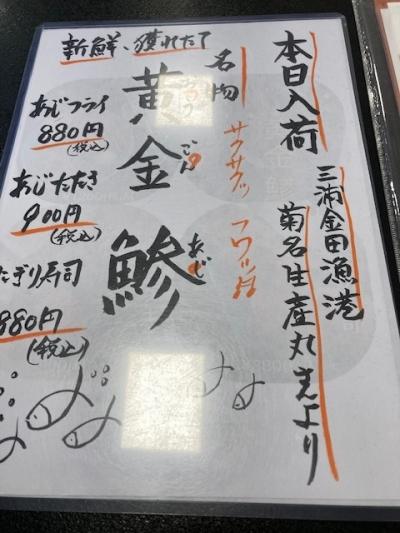 本日入荷
三浦金田漁港
菊名生産丸さんより
名物
サクサクッ フワッ♬
新鮮、獲れたて
黄金鯵
おうごん
あじ
あじフライ
880円
(税込)
あじたたき
900円
(税込)
にぎり寿司
880円
(税込)